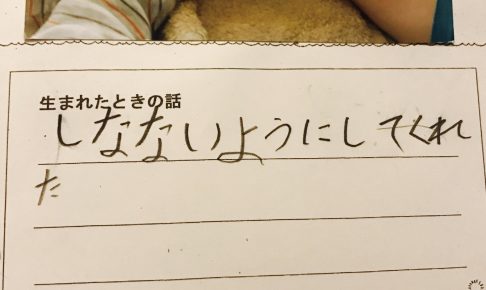 生まれたときの話
しなないようにしてくれ
た